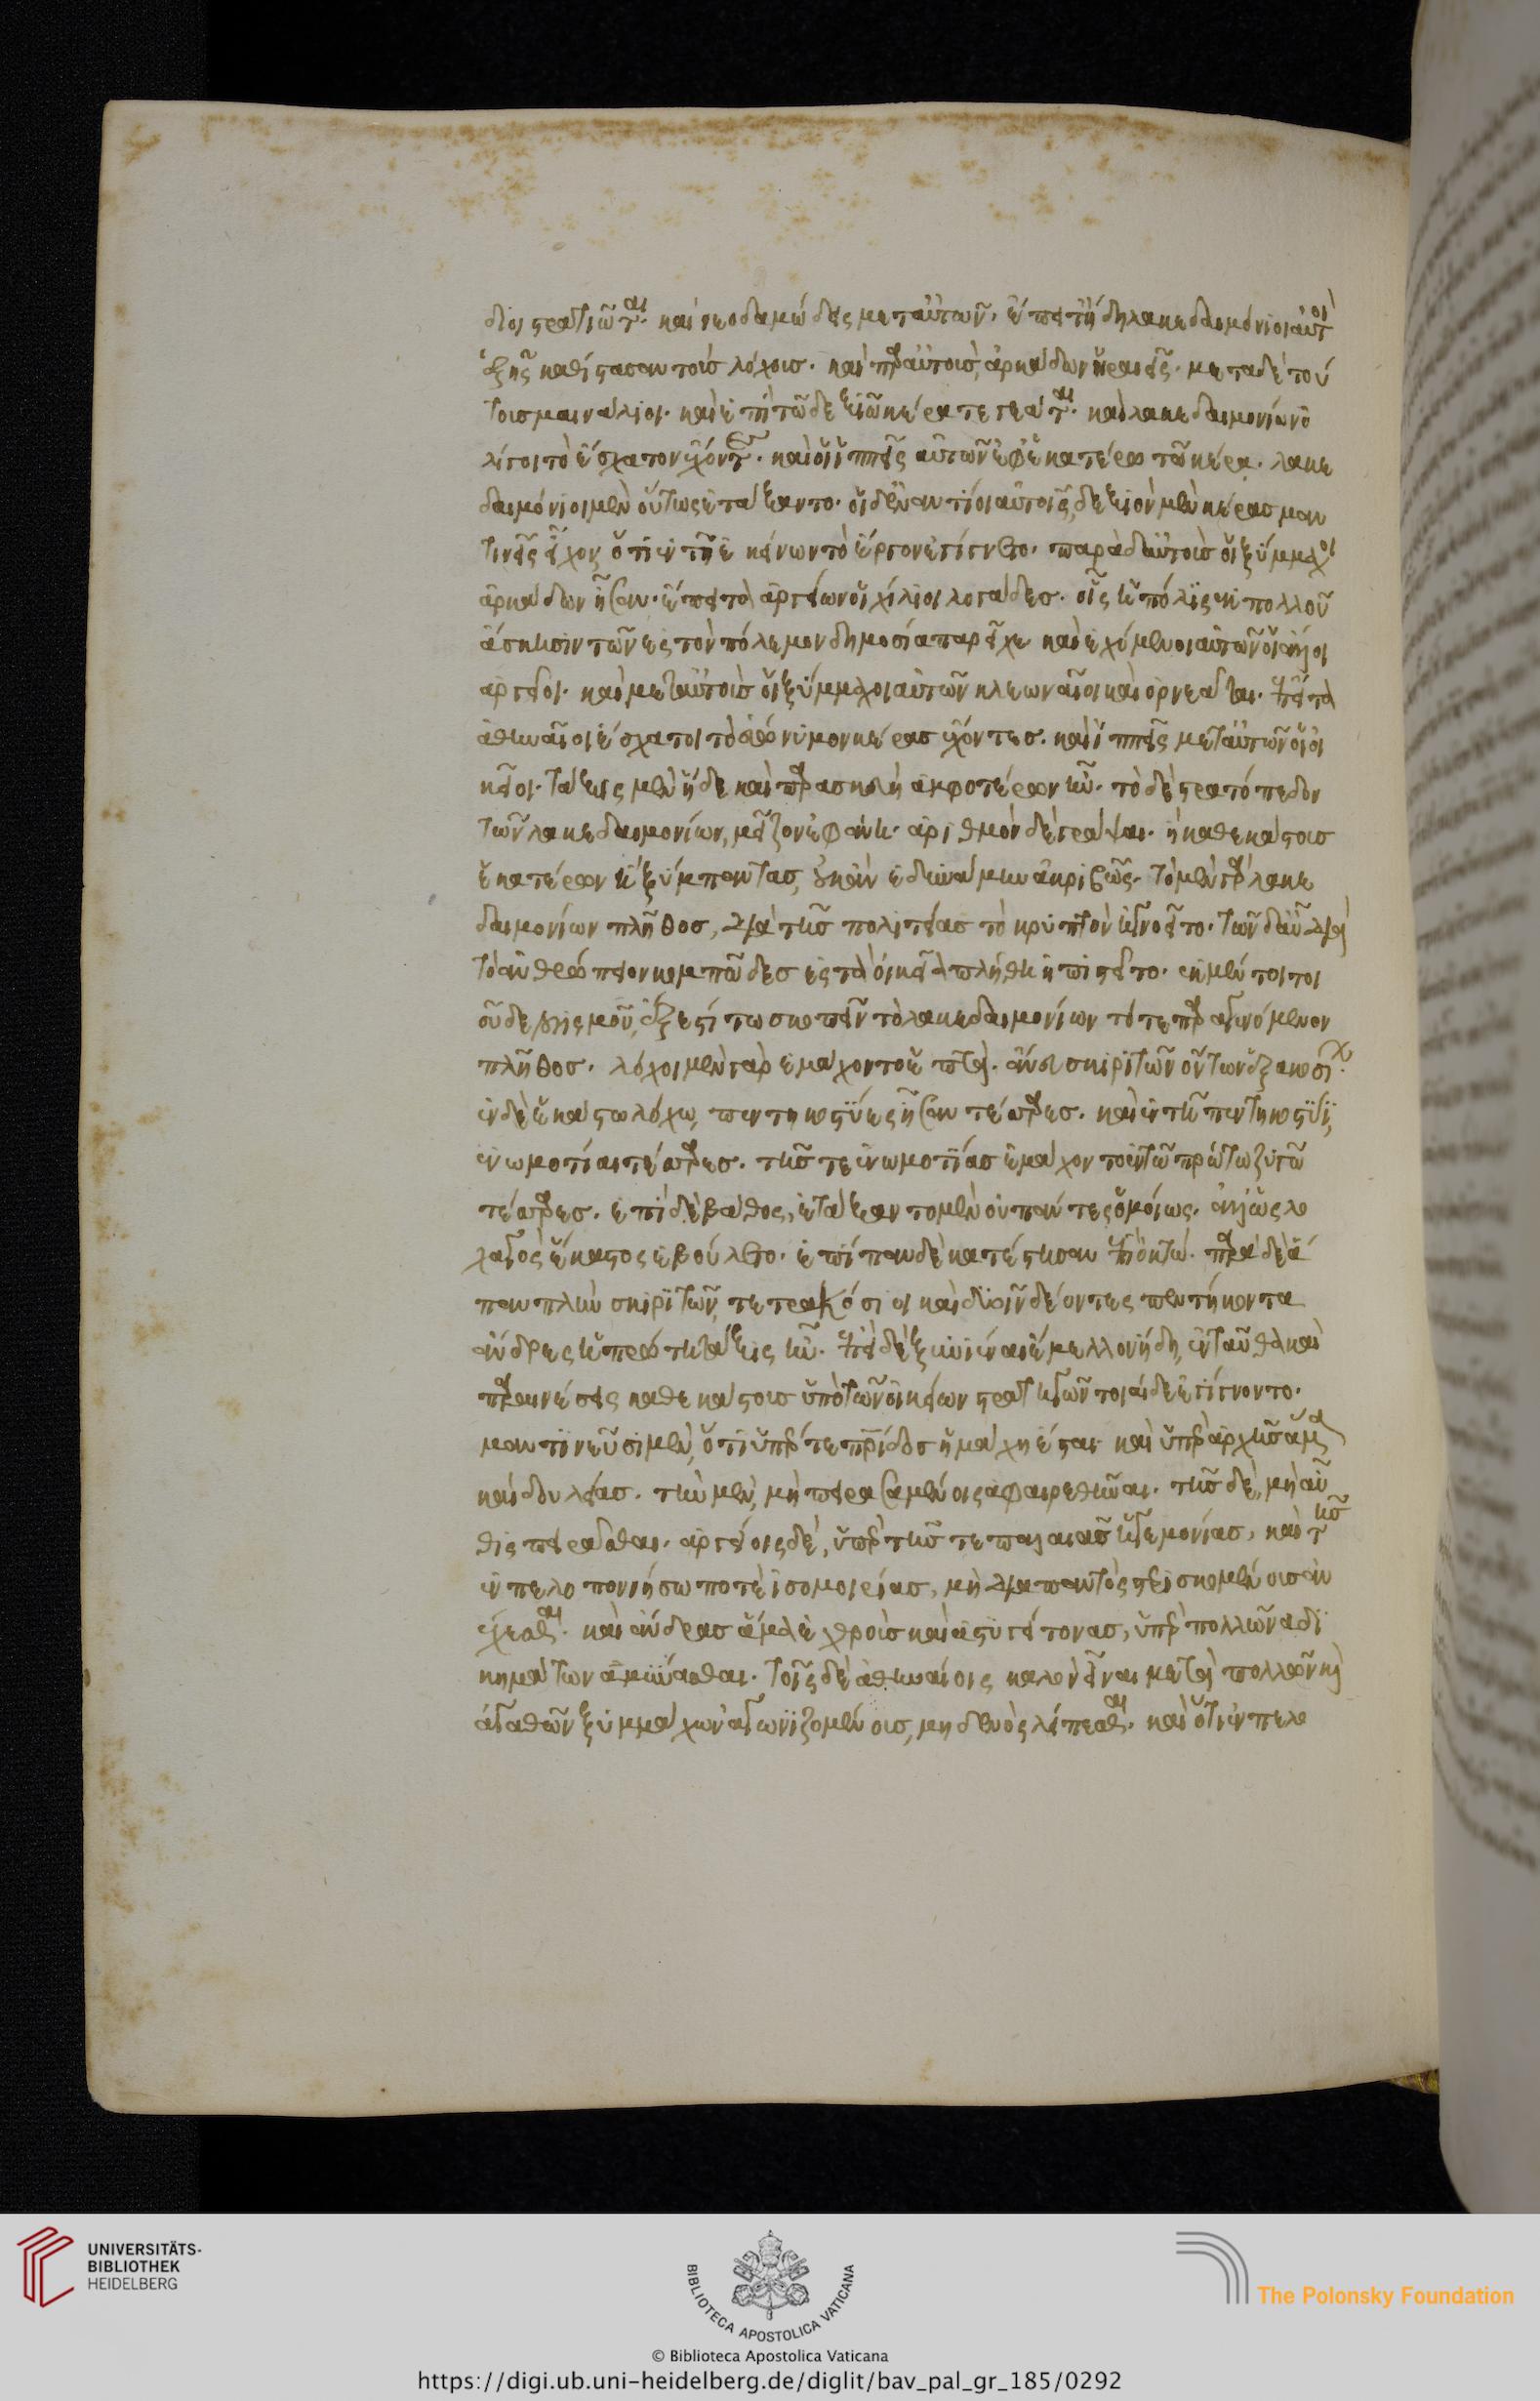 διοι στρατιῶται. καὶ νεοδαμώδεις μετ' αὐτῶν. ἔπειτ' ἤδη λακεδαιμόνιοι αὐτοὶ
ἑξῆς καθίστασαν τοὺς λόχους. καὶ παρ' αὐτοῖς, ἀρκάδων ἡραιεῖς. μετὰ δὲ τού
τους μαινάλιοι. καὶ ἐπὶ τῷ δεξιῷ κέρα τεγεᾶται. καὶ λακεδαιμονίων ὀ
λίγοι τὸ ἔσχατον ἔχοντες. καὶ οἱ ἱππεῖς αὐτῶν ἐφ' ἑκατέρῳ τῷ κέρᾳ. λακε
δαιμόνιοι μὲν οὕτως ἐτάξαντο. οἱ δ' ἐναντίοι αὐτοῖς, δεξιὸν μὲν κέρας μαν
τινεῖς εἶχον, ὅτι ἐν τῇ ἐκείνων τὸ ἔργον ἐγίγνετο. παρὰ δ' αὐτοῖς οἱ ξύμμαχοι
ἀρκάδων ἦσαν. ἔπειτα ἀργείων οἱ χίλιοι λογάδες. οἷς ἡ πόλις ἐκ πολλοῦ
ἄσκησιν τῶν ἐς τὸν πόλεμον δημοσίᾳ παρεῖχε καὶ ἐχόμενοι αὐτῶν οἱ ἄλλοι
ἀργεῖοι. καὶ μετ' αὐτοὺς οἱ ξύμμαχοι αὐτῶν κλεωναῖοι καὶ ὀρνεᾶται. ἔπειτα
ἀθηναῖοι ἔσχατοι τὸ εὐώνυμον κέρας ἔχοντες. καὶ ἱππεῖς μετ' αὐτῶν οἱ οἰ
κεῖοι. τάξις μὲν ἥδε καὶ παρασκευὴ ἀμφοτέρων ἦν. τὸ δὲ στρατόπεδον
τῶν λακεδαιμονίων, μεῖζον ἐφάνη. ἀριθμὸν δὲ γράψαι. ἢ καθ' ἑκάστους
ἑκατέρων ἢ ξύμπαντας, οὐκ ἂν ἐδυνάμην ἀκριβῶς. τὸ μὲν γὰρ λακε
δαιμονίων πλῆθος, διὰ τῆς πολιτείας τὸ κρυπτὸν ἠγνοεῖτο. τῶν δ' αὖ διὰ
τὸ ἀνθρώπειον κομπῶδες ἐς τὰ οἰκεῖα πλήθη ἠπιστεῖτο. ἐκ μέντοι τοι
οῦδε λογισμοῦ, ἔξεστί τῳ σκοπεῖν τὸ λακεδαιμονίων τότε παραγενόμενον
πλῆθος. λόχοι μὲν γὰρ ἐμάχοντο ἑπτὰ. ἄνευ σκιριτῶν ὄντων ἑξακοσίων.
ἐν δὲ ἑκάστῳ λόχῳ, πεντηκοστύες ἦσαν τέσσαρες. καὶ ἐν τῇ πεντηκοστύϊ,
ἐνωμοτίαι τέσσαρες. τῆς τε ἐνωμοτίας ἐμάχοντο ἐν τῷ πρώτῳ ζυγῷ
τέσσαρες. ἐπὶ δὲ βάθος, ἐτάξαντο μὲν οὐ πάντες ὁμοίως. ἀλλ' ὡς λο
χαγὸς ἕκαστος ἐβούλετο. ἐπὶ πᾶν δὲ κατέστησαν ἐπὶ ὀκτώ. παρὰ δὲ ἅ
παν πλὴν σκιριτῶν, τετρακόσιοι καὶ δυοῖν δέοντες πεντήκοντα
ἄνδρες ἡ πρώτη τάξις ἦν. ἐπεὶ δὲ ξυνιέναι ἔμελλον ἤδη, ἐνταῦθα καὶ
παραινέσεις καθ' ἑκάστους ὑπὸ τῶν οἰκείων στρατηγῶν τοιαίδε ἐγίγνοντο.
μαντινεῦσι μὲν, ὅτι ὑπέρ τε πατρίδος ἡ μάχη ἔσται καὶ ὑπὲρ ἀρχῆς ἅμα
καὶ δουλείας. τὴν μὲν, μὴ πειρασαμένοις ἀφαιρεθῆναι. τῆς δὲ, μὴ αὖ
θις πειρᾶσθαι. ἀργείοις δὲ, ὑπὲρ τῆς τε παλαιᾶς ἡγεμονίας, καὶ τῆς
ἐν πελοποννήσῳ ποτὲ ἰσομοιρίας, μὴ διὰ παντὸς στερισκομένους ἀν
έχεσθαι. καὶ ἄνδρας ἅμα ἐχθροὺς καὶ ἀστυγείτονας, ὑπὲρ πολλῶν ἀδι
κημάτων ἀμύνασθαι. τοῖς δὲ ἀθηναίοις καλὸν εἶναι μετὰ πολλῶν καὶ
ἀγαθῶν ξυμμάχων ἀγωνιζομένοις, μηδενὸς λείπεσθαι. καὶ ὅτι ἐν πελο
UNIVERSITÄTS-
BIBLIOTHEK
HEIDELBERG
BIBLIOTECA APOSTOLICA VATICANA
The Polonsky Foundation
© Biblioteca Apostolica Vaticana
https://digi.ub.uni-heidelberg.de/diglit/bav_pal_gr_185/0292